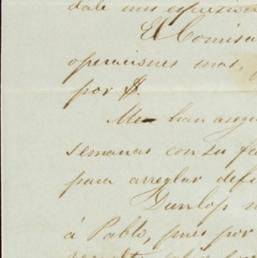 dale mis expresion
El Comisa
operaciones mas,
por $.
Me han asegu
semanas con su fa
para arreglar defi
Dunlop
á Pablo, pues por